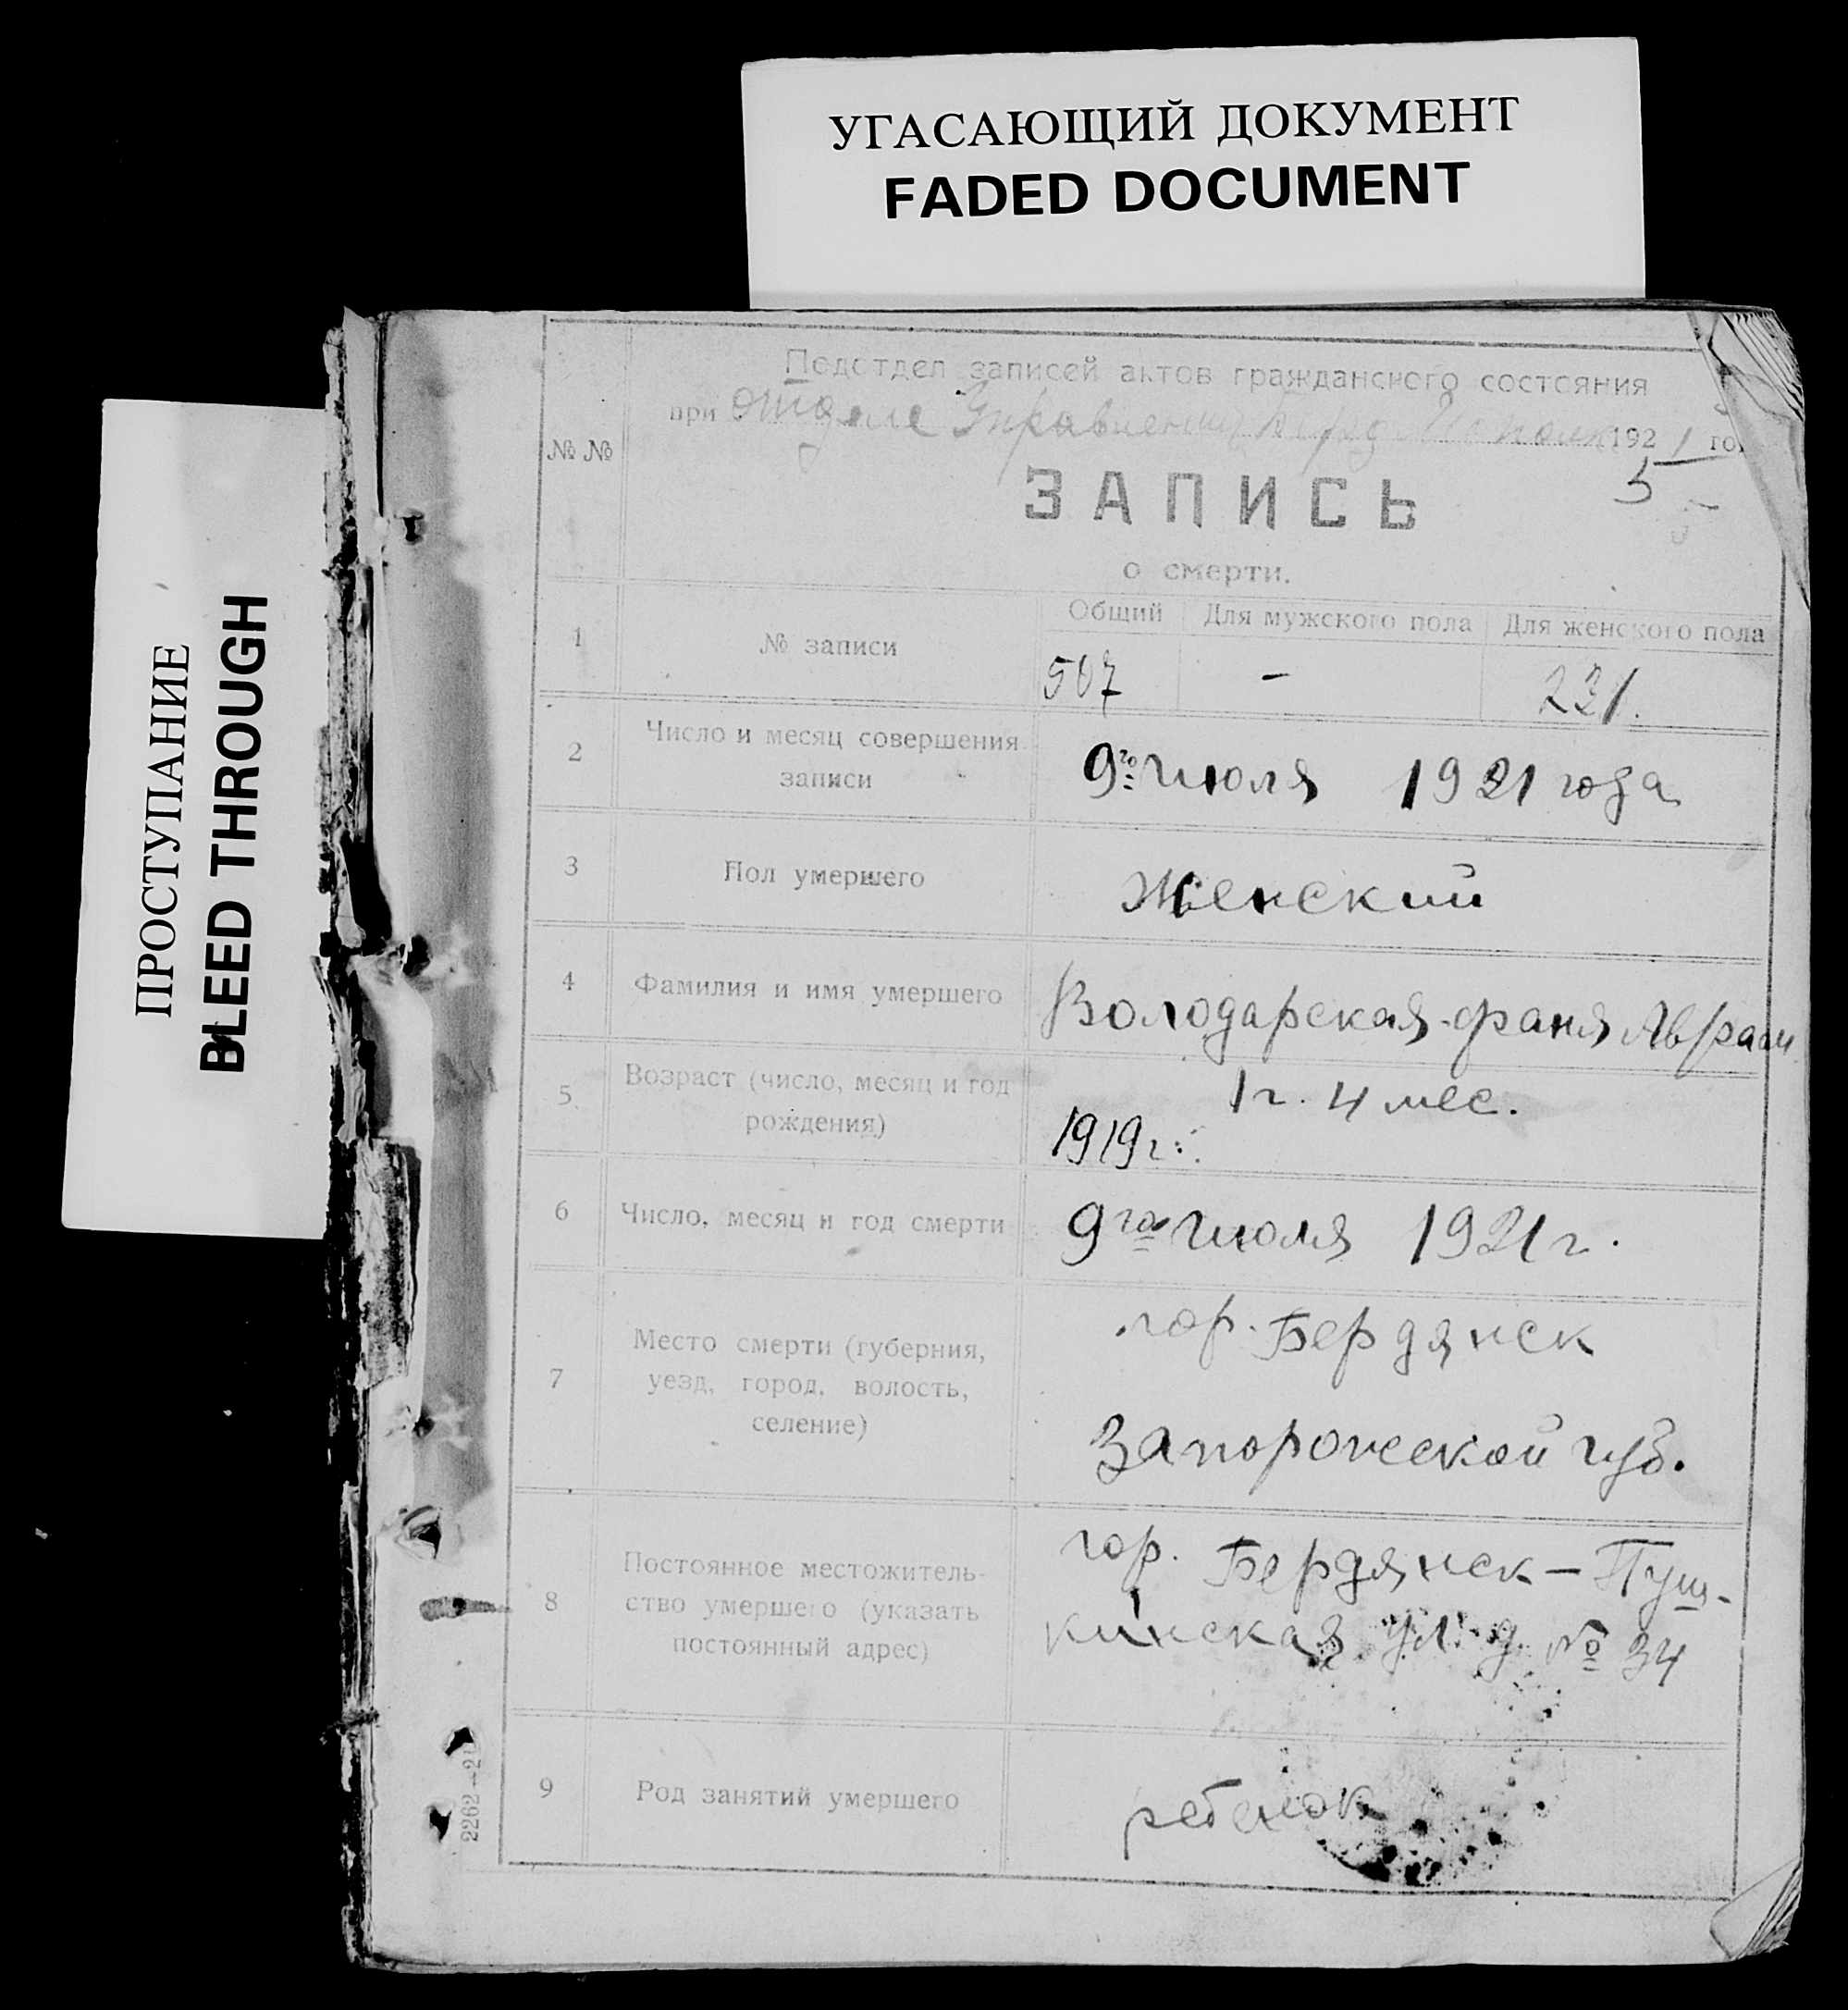 УГАСАЮЩИЙ ДОКУМЕНТ
FADED DOCUMENT
ПРОСТУПАНИЕ
BLEED THROUGH
Подотдел записей актов гражданского состояния
при отделе Управления Берд 1921 го
№ №
5
ЗАПИСЬ
о смерти.
Общий Для мужского пола Для женского пола
1 № записи 507 - 231.
2 Число и месяц совершения записи 9го Июля 1921 года
3 Пол умершего Женский
4 Фамилия и имя умершего Володарская-Фаня Аврам
5 Возраст (число, месяц и год рождения) 1 г. 4 мес.
1919 г.
6 Число, месяц и год смерти 9го Июля 1921 г.
7 Место смерти (губерния, уезд, город, волость, селение) гор. Бердянск
Запорожской губ.
8 Постоянное местожитель-
ство умершего (указать
постоянный адрес)
гор. Бердянск – Пуш-
кинская ул. д. № 34
9 Род занятий умершего ребенок